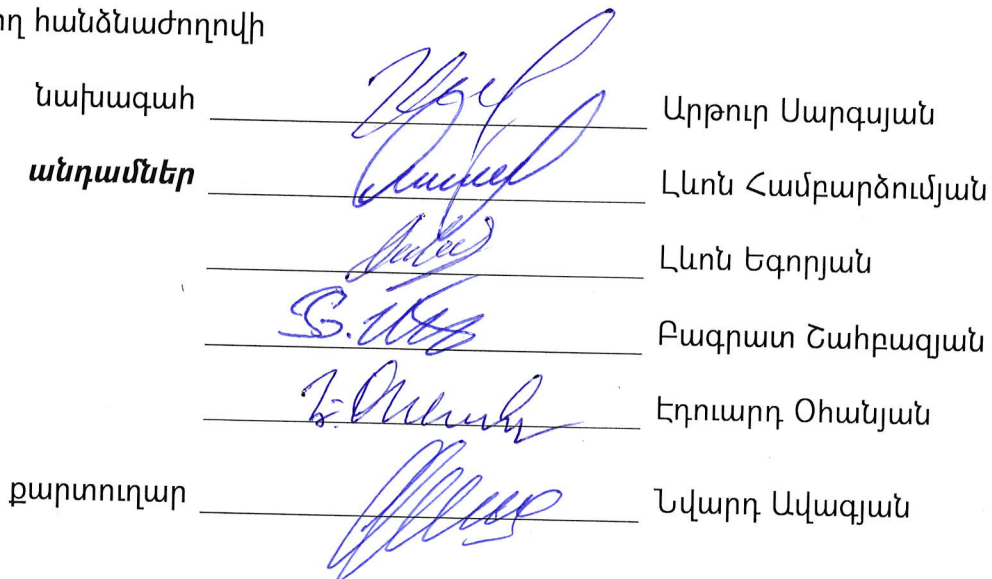 հանձնաժողովի
նախագահ Արթուր Սարգսյան
անդամներ Լևոն Համբարձումյան
Լևոն Եգորյան
Բագրատ Շահբազյան
Էդուարդ Օհանյան
քարտուղար Նվարդ Ավագյան